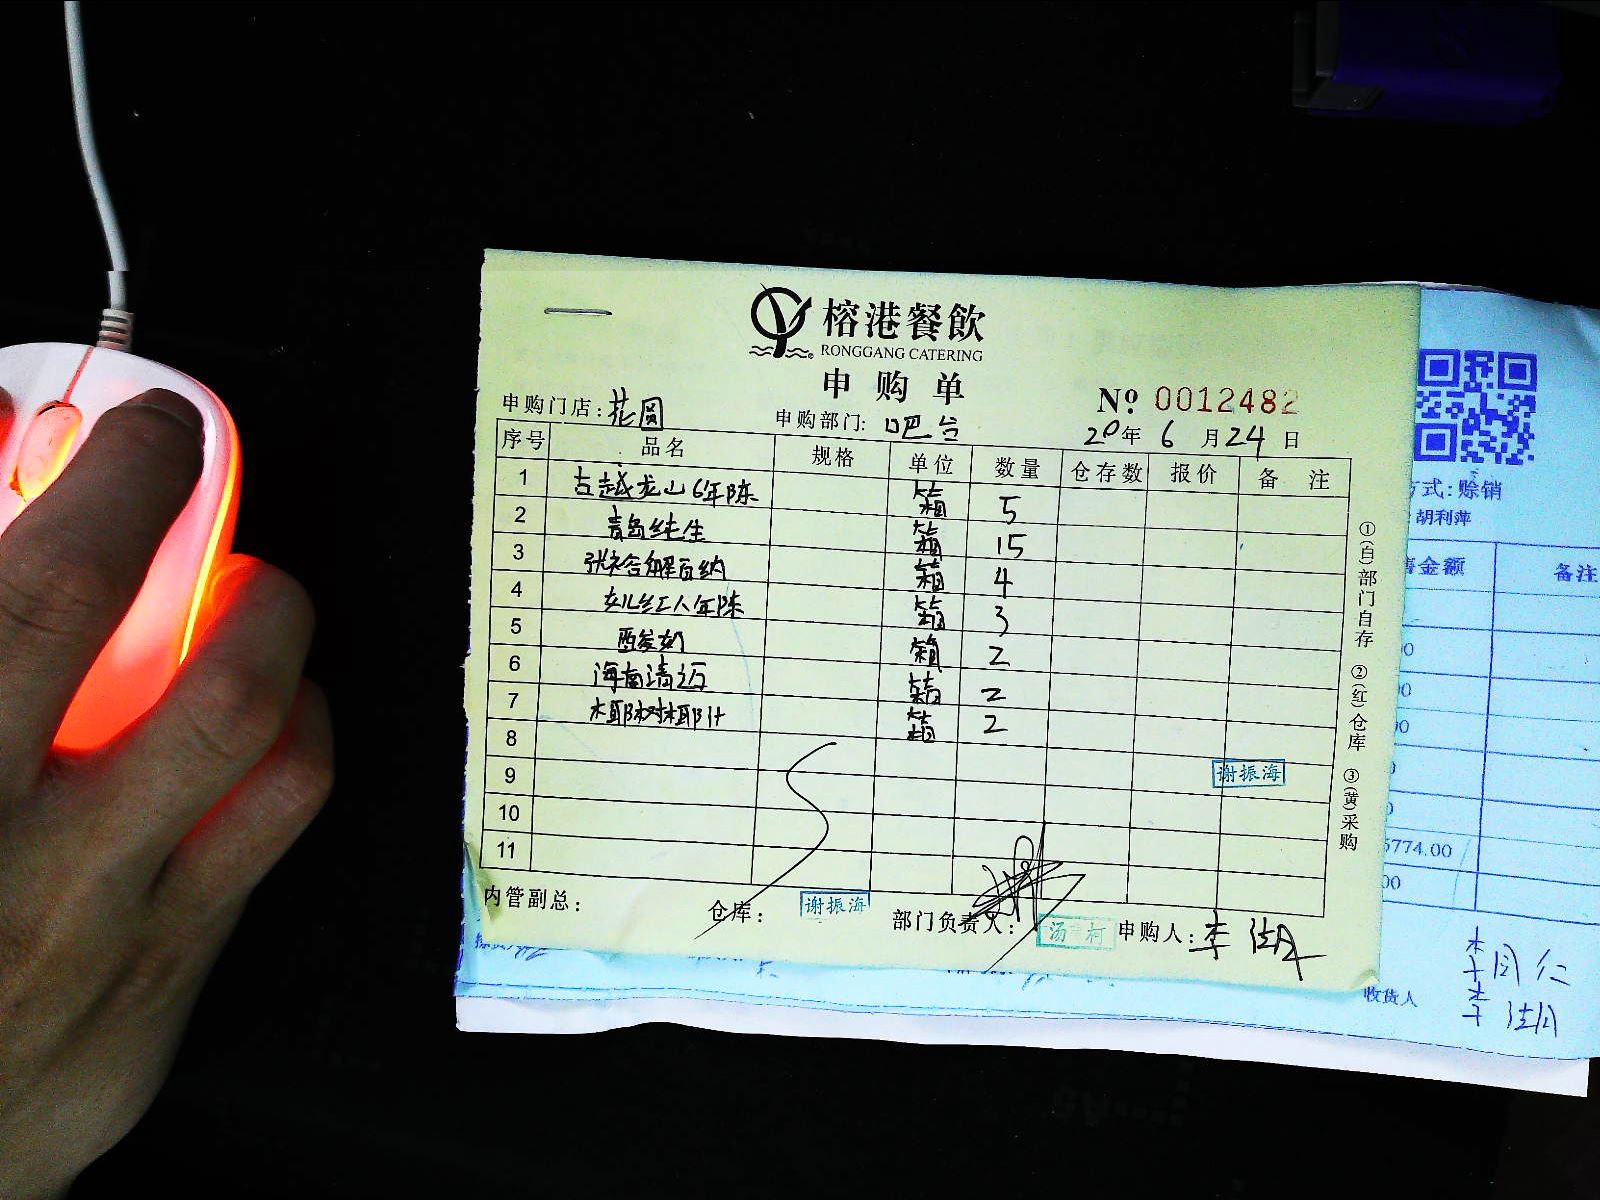 榕港餐飲
RONGGANG CATERING
申购单
申购门店:花圆
申购部门:吧台
Nº 0012482
20年6月24日
序号 品名 规格 单位 数量 仓存数 报价 备注
1 古越龙山6年陈 箱 5
2 青岛纯生 箱 15
3 张裕解百纳 箱 4
4 女儿红八年陈 箱 3
5 酉发奶 箱 2
6 海南清迈 箱 2
7 椰树椰汁 箱 2
8
9 谢振海
10
11
①(白)部门自存 ②(红)仓库 ③(黄)采购
内管副总: 仓库: 谢振海 部门负责人: 汤 柯 申购人:李
方式:赊销
胡利萍
售金额 备注
5774.00
收货人